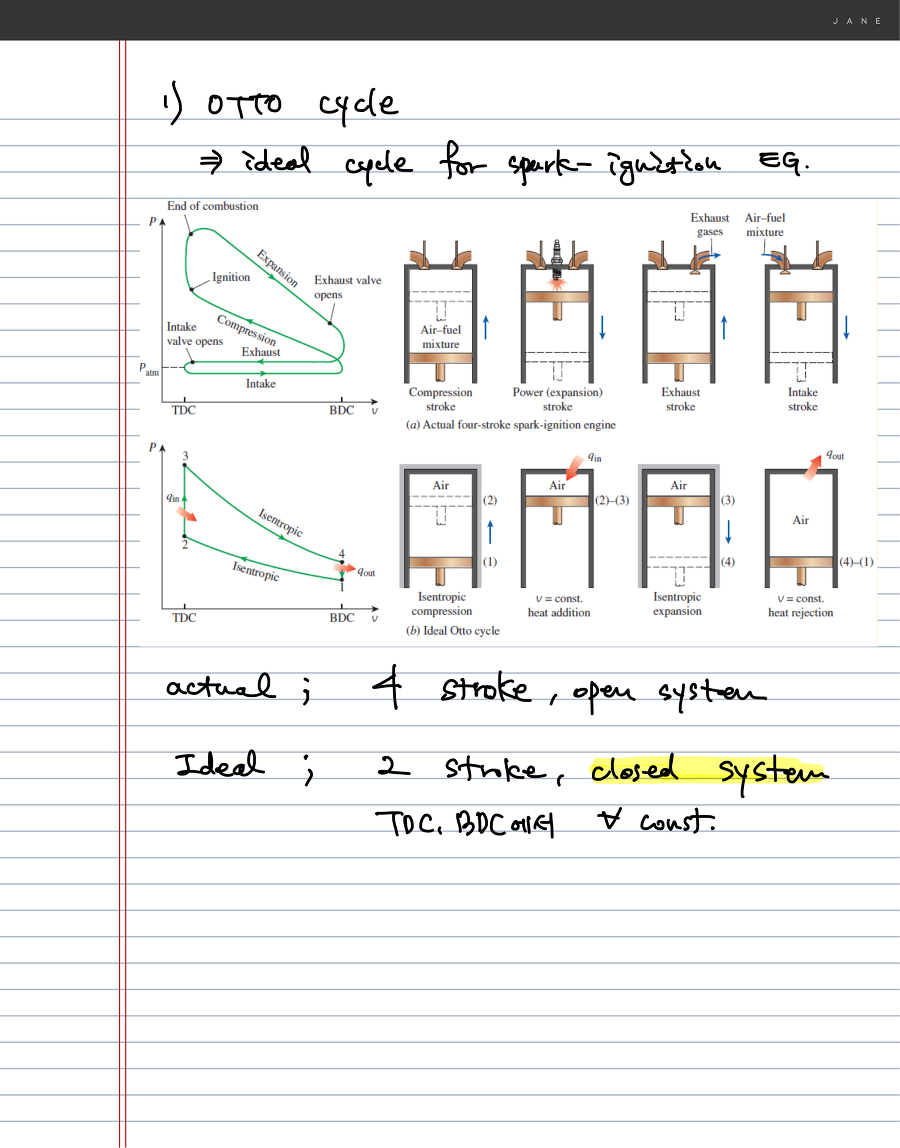 JANE
1) OTTO cycle
⇒ ideal cycle for spark-ignition EG.
P
End of combustion
Expansion
Ignition
Exhaust valve
opens
Compression
Intake
valve opens
Exhaust
Patm
Intake
TDC
BDC
v
Exhaust
gases
Air–fuel
mixture
Air–fuel
mixture
Compression
stroke
Power (expansion)
stroke
Exhaust
stroke
Intake
stroke
(a) Actual four-stroke spark-ignition engine
P
3
qin
Isentropic
2
Isentropic
4
qout
1
TDC
BDC
v
Air
(2)
(1)
Isentropic
compression
qin
Air
(2)–(3)
v = const.
heat addition
Air
(3)
(4)
Isentropic
expansion
qout
Air
(4)–(1)
v = const.
heat rejection
(b) Ideal Otto cycle
actual ; 4 stroke, open system
Ideal ; 2 stroke, closed system
TDC, BDC에서 ∀ const.